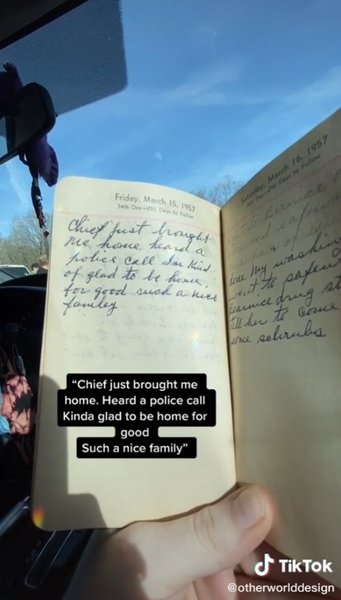 Friday, March 15, 1957
74th Day—291 Days to Follow
Chief just brought
me home heard a
police call I'm kind
of glad to be home,
for good such a nice
family
Saturday, March 16, 1957
75th Day—290 Days to Follow
my washing
went to
drug st
tell her to come
some schrubs
“Chief just brought me
home. Heard a police call
Kinda glad to be home for
good
Such a nice family”
TikTok
@otherworlddesign